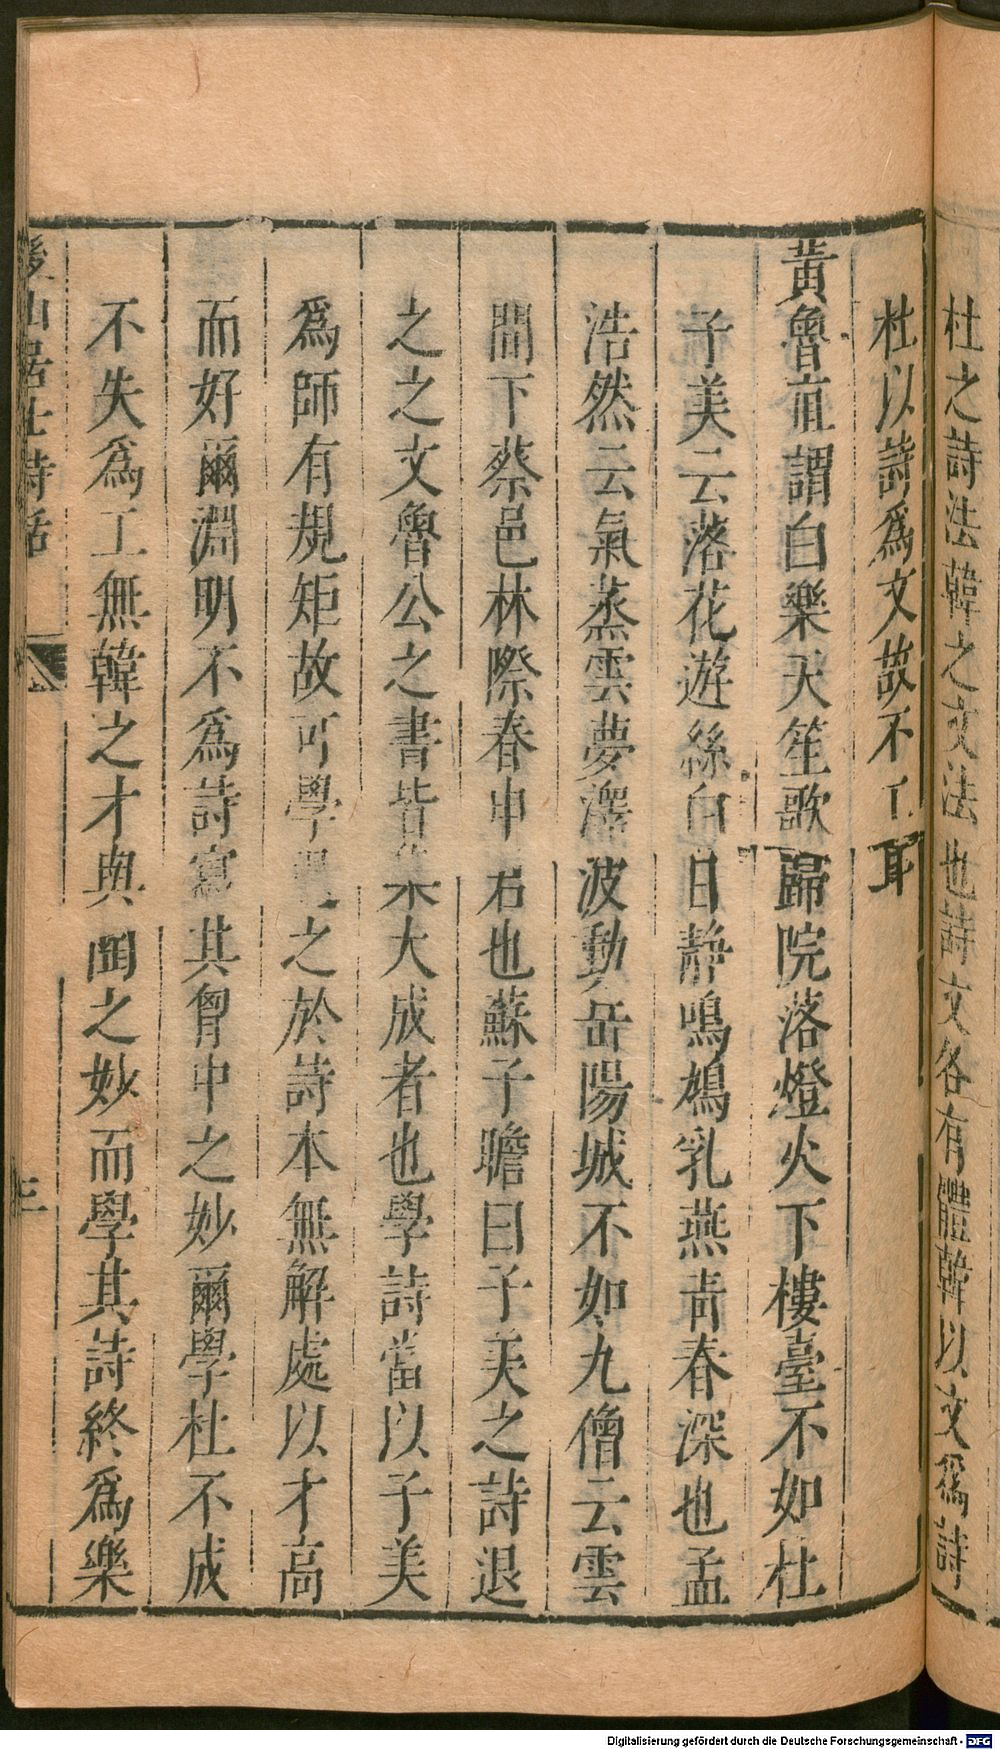 杜之詩法韓之文法也詩文各有體韓以文爲詩
杜以詩爲文故不工耳
黃魯直謂白樂天笙歌歸院落燈火下樓臺不如杜
子美云落花遊絲白日靜鳴鳩乳燕靑春深也孟
浩然云氣蒸雲夢澤波動岳陽城不如九僧云雲
間下蔡邑林際春申君也蘇子瞻曰子美之詩退
之之文魯公之書皆集大成者也學詩當以子美
爲師有規矩故可學之於詩本無解處以才高
而好爾淵明不爲詩寫其胷中之妙爾學杜不成
不失爲工無韓之才與陶之妙而學其詩終爲樂
後山居士詩話
三
Digitalisierung gefördert durch die Deutsche Forschungsgemeinschaft - DFG